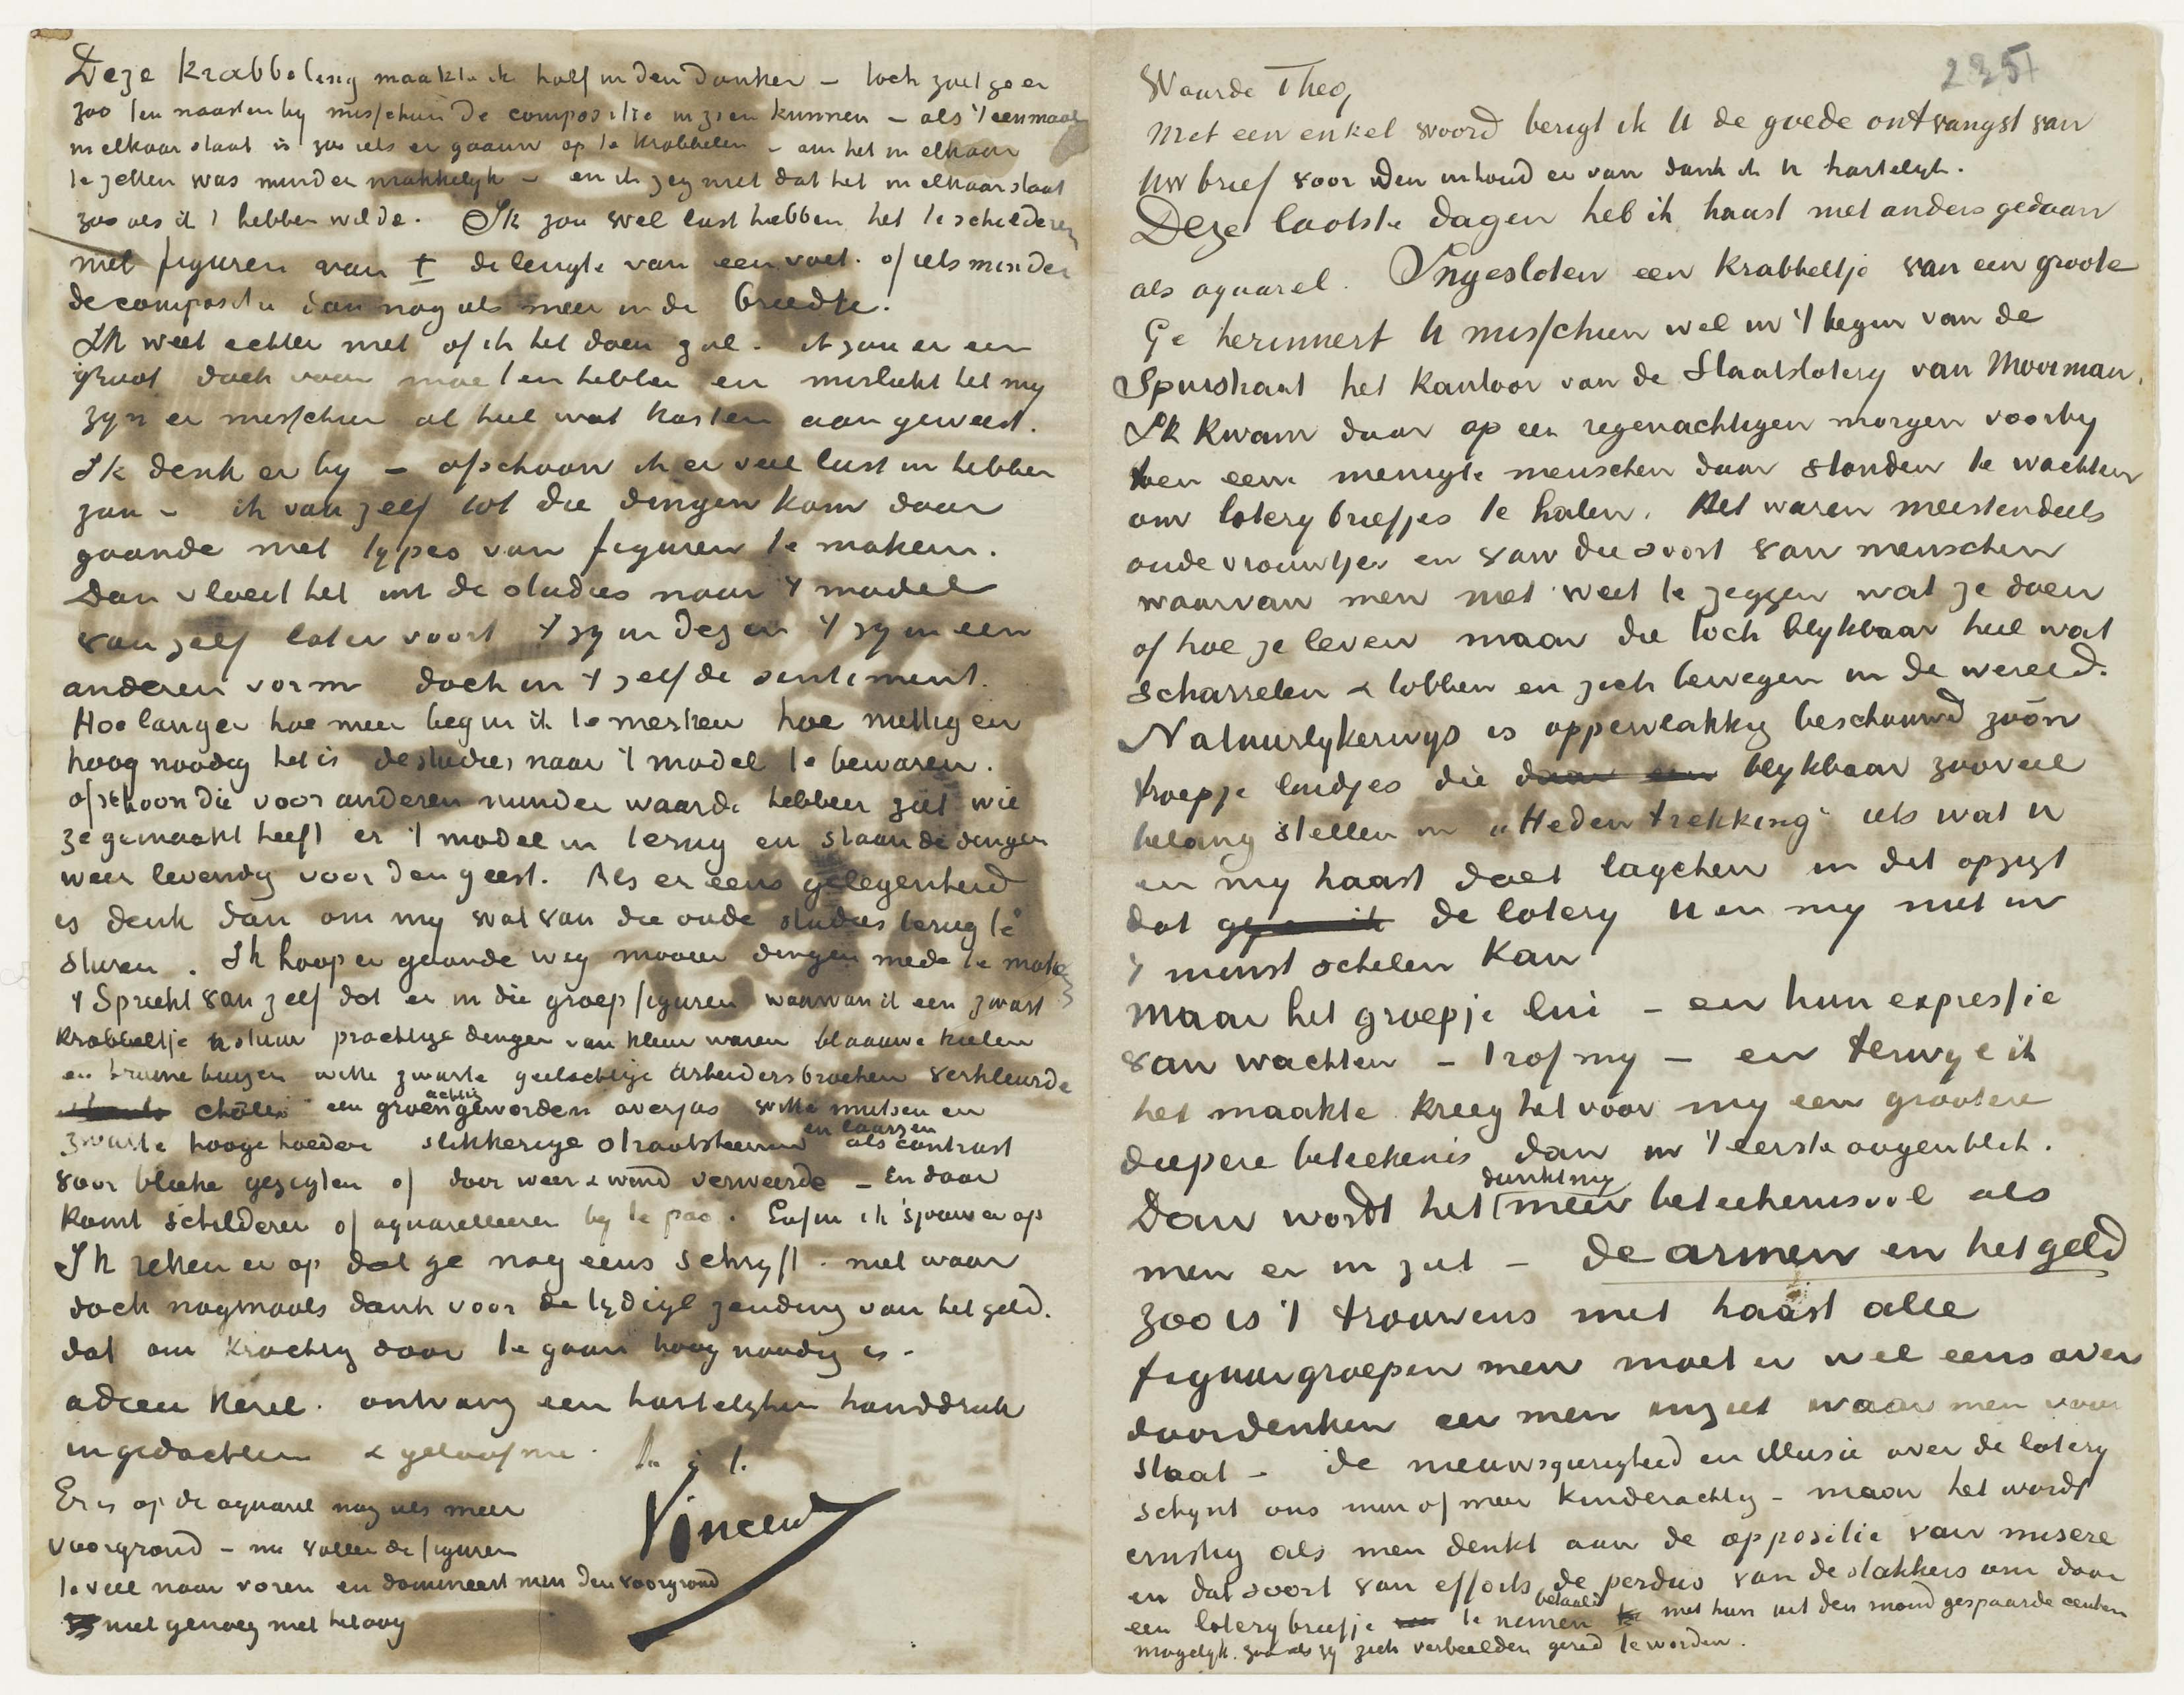 235
Waarde Theo,
Met een enkel woord berigt ik U de goede ontvangst van
Uw brief voor den inhoud er van dank ik U hartelijk.
Deze laatste dagen heb ik haast niet anders gedaan
als aquarel. Ingesloten een krabbeltje van een groote
Ge herinnert U misschien wel in 't begin van de
Spuistraat het kantoor van de Staatslotery van Mooiman.
Ik kwam daar op een regenachtigen morgen voorby
toen eene menigte menschen daar stonden te wachten
om lotery briefjes te halen. Het waren meestendeels
oude vrouwtjes en van die soort van menschen
waarvan men niet weet te zeggen wat ze doen
of hoe ze leven maar die toch blykbaar heel wat
scharrelen & tobben en zich bewegen in de wereld.
Natuurlykerwys is oppervlakkig beschouwd zoo'n
troepje luidjes die blykbaar zooveel
belang stellen in „Heden trekking" iets wat U
en my haast doet lagchen in dit opzigt
dat de lotery U en my niet in
't minst schelen kan
maar het groepje lui – en hun expressie
van wachten – trof my – en terwyl ik
het maakte kreeg het voor my een grootere
diepere beteekenis dan in 't eerste oogenblik.
Dan wordt het dunkt my meer beteekenisvol als
men er in ziet – de armen en het geld
zoo is 't trouwens met haast alle
figuurgroepen men moet er wel eens over
doordenken eer men inziet waar men voor
staat – de nieuwsgierigheid en illusie over de lotery
schynt ons min of meer kinderachtig – maar het wordt
ernstig als men denkt aan de oppositie van misere
en dat soort van efforts de perdus van de stakkers om door
een lotery briefje te nemen betaald met hun uit den mond gespaarde centen
mogelyk zooals zy zich verbeelden gered te worden.
Deze krabbeling maakte ik half in den donker – toch zult ge er
zoo ten naastenby misschien de compositie in zien kunnen – als 't eenmaal
in elkaar staat is zoo iets er gaauw op te krabbelen – om het in elkaar
te zetten was minder makkelyk – en ik zeg niet dat het in elkaar staat
zoo als ik 't hebben wilde. Ik zou wel lust hebben het te schilderen
met figuren van ± de lengte van een voet. of iets minder
de compositie dan nog iets meer in de breedte.
Ik weet echter niet of ik het doen zal. ik zou er een
groot doek voor moeten hebben en mislukt het my
zyn er misschien al heel wat kosten aan geweest.
Ik denk er by – ofschoon ik er veel lust in hebben
zou – ik van zelf tot die dingen kom door
gaande met types van figuren te maken.
Dan vloeit het uit de studies naar 't model
van zelf later voort 't zy in dezen 't zy in een
anderen vorm doch in 't zelfde sentiment.
Hoe langer hoe meer begin ik te merken hoe nuttig en
hoog noodig het is de studies naar 't model te bewaren.
ofschoon die voor anderen minder waarde hebben ziet wie
ze gemaakt heeft er 't model in terug en staan de dingen
weer levendig voor den geest. Als er eens gelegenheid
is denk dan om my wat van die oude studies terug te
sturen. Ik hoop er gaande weg mooier dingen mede te maken
't Spreekt van zelf dat er in die groep figuren waarvan ik een zwart
krabbeltje U stuur prachtige dingen van kleur waren blaauwe kielen
en bruine buizen witte zwarte geelachtige arbeidersbroeken verkleurde
châles een groenachtig geworden overjas witte mutsen en
zwarte hooge hoeden slikkerige straatsteenen en laarzen als contrast
voor bleeke gezigten of door weer & wind verweerde – En daar
komt schilderen of aquarelleeren by te pas. Enfin ik sjouw er op
Ik reken er op dat ge nog eens schryft. niet waar
doch nogmaals dank voor de tydige zending van het geld.
dat om krachtig door te gaan hoog noodig is –
adieu kerel. ontvang een hartelyken handdruk
in gedachten & geloof me. t. à t.
Vincent
Er is op de aquarel nog iets meer
voorgrond – nu vallen de figuren
te veel naar voren en domineert men den voorgrond
niet genoeg met het oog